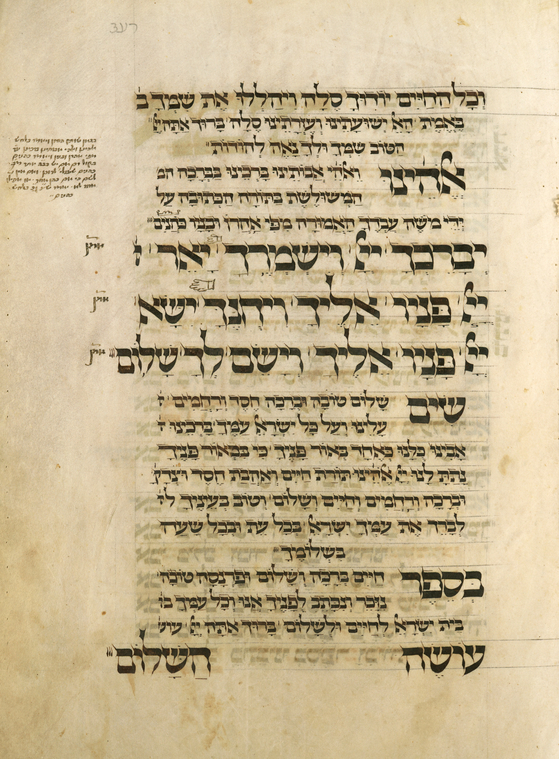 רעג
וכל החיים יודוך סלה ויהללו את שמך ב
באמית האל ישועתינו ועזרתינו סלה ברוך אתה יי
הטוב שמך ולך נאה להודות
אלהינו ואלהי אבותינו ברכינו בברכה המ
המשולשת בתורה הכתובה על
ידי משה עבדך האמורה מפי אהרן ובניו כהנים
יברכך יי וישמרך יאר
אמן
יי פניו אליך ויחנך ישא
אמן
יי פניו אליך וישם לך שלום
אמן
שים שלום טובה וברכה חסד ורחמים
עלינו ועל כל ישראל עמך ברכינו
אבינו כולנו כאחד באור פניך כי באור פניך
נתת לנו יי אלהינו תורת חיים ואהבת חסד וצדק
וברכה ורחמים וחיים ושלום וטוב בעיניך ל
לברך את עמך ישראל בכל עת ובכל שעה
בשלומיך
בספר חיים ברכה ושלום ופרנסה טובה
נזכר ונכתב לפניך אנו וכל עמך בי
בית ישראל לחיים ולשלום ברוך אתה יי עוש
עושה השלום